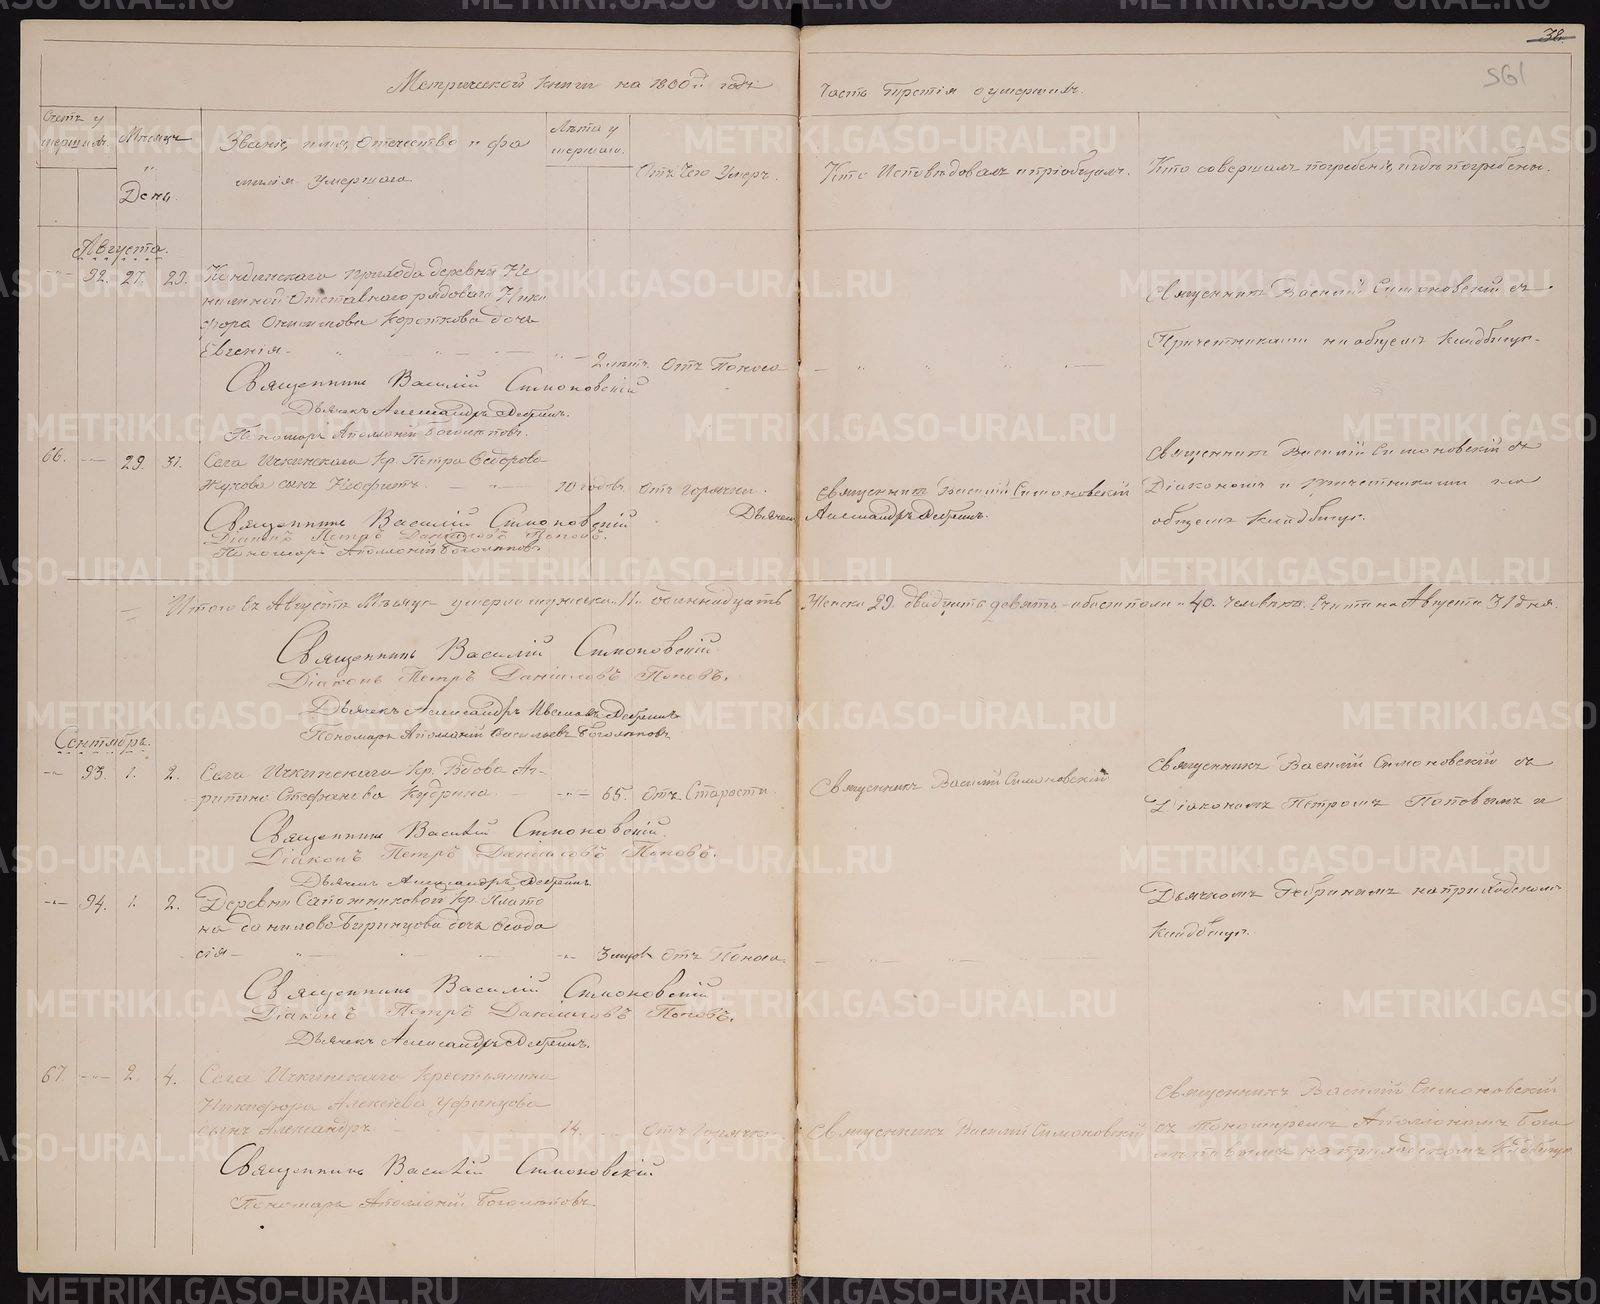 38.
561
Метрической книги на 1880й годъ
Часть Третія о умершихъ.
Счетъ у
мершихъ.
Мѣсяцъ
День
Званіе, имя, Отечество и фа
милія умершаго
Лѣта у
мершаго.
Отъ Чего Умеръ.
Кто Исповѣдовалъ и пріобщалъ.
Кто совершалъ погребеніе, и гдѣ погребены.
Августа.
92. 27. 29. прихода деревни
Отставнаго рядоваго Ники
фора Короткова дочь
Евгенія 2 лѣтъ Отъ Поноса
Священникъ Василій Симоновскій съ
Причетниками на общемъ кладбищѣ.
Священникъ Василій Симоновскій
Дьячекъ Александръ Дебринъ.
Пономарь Аполлоній Боголѣповъ.
66. 29. 31. Села Ичкинскаго Кр. Петра Ѳедорова
Жукова сынъ Неофитъ. 10 годовъ отъ горячки.
Священникъ Василій Симоновскій
Дьячекъ Александръ Дебринъ.
Священникъ Василій Симоновскій съ
Діакономъ и причетниками на
общемъ кладбищѣ.
Священникъ Василій Симоновскій
Діаконъ Петръ Данииловъ Поповъ.
Пономарь Аполлоній Боголѣповъ
Итого въ Августѣ Мѣсяцѣ умерло мужеска. 11. одиннадцать Женска 29. двадцать девять а обоего пола 40. Человѣкъ. Августа 31 дня.
Священникъ Василій Симоновскій
Діаконъ Петръ Данииловъ Поповъ.
Дьячекъ Александръ Дебринъ
Пономарь Аполлоній Васильевъ Боголѣповъ
Сентябрь.
93. 1. 2. Села Ичкинскаго Кр. Вдова Аг-
рипина Стефанова Кудрина 65. отъ Старости
Священникъ Василій Симоновскій
Священникъ Василій Симоновскій съ
Діакономъ Петромъ Поповымъ и
Дьячкомъ Дебринымъ на приходскомъ
кладбищѣ.
Священникъ Василій Симоновскій
Діаконъ Петръ Данииловъ Поповъ.
Дьячекъ Александръ Дебринъ
94. 1. 2. Деревни Сапожниковой Кр. Плато
на Данилова дочь Ѳеодо
сія Отъ Поноса
Священникъ Василій Симоновскій
Діаконъ Петръ Данииловъ Поповъ.
Дьячекъ Александръ Дебринъ.
67. 2. 4. Села Ичкинскаго Крестьянина
Никифора Алексѣева Уфинцова
сынъ Александръ 14. Отъ Горячки
Священникъ Василій Симоновскій
Священникъ Василій Симоновскій
съ Пономаремъ Аполлоніемъ Бого
лѣповымъ на приходскомъ Кладбищѣ
Священникъ Василій Симоновскій
Пономарь Аполлоній Боголѣповъ.
METRIKI.GASO-URAL.RU